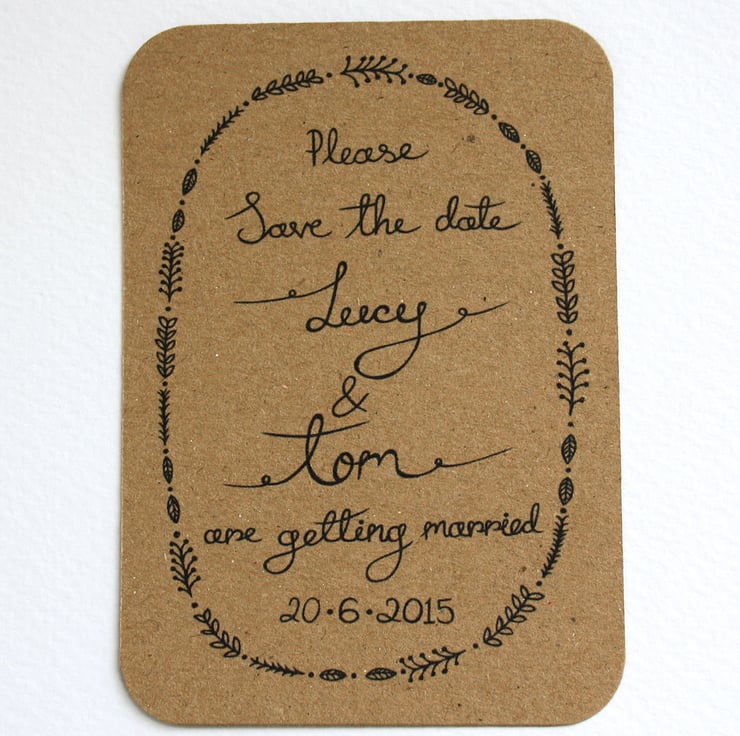 Please
Save the date
Lucy
&
tom
are getting married
20·6·2015